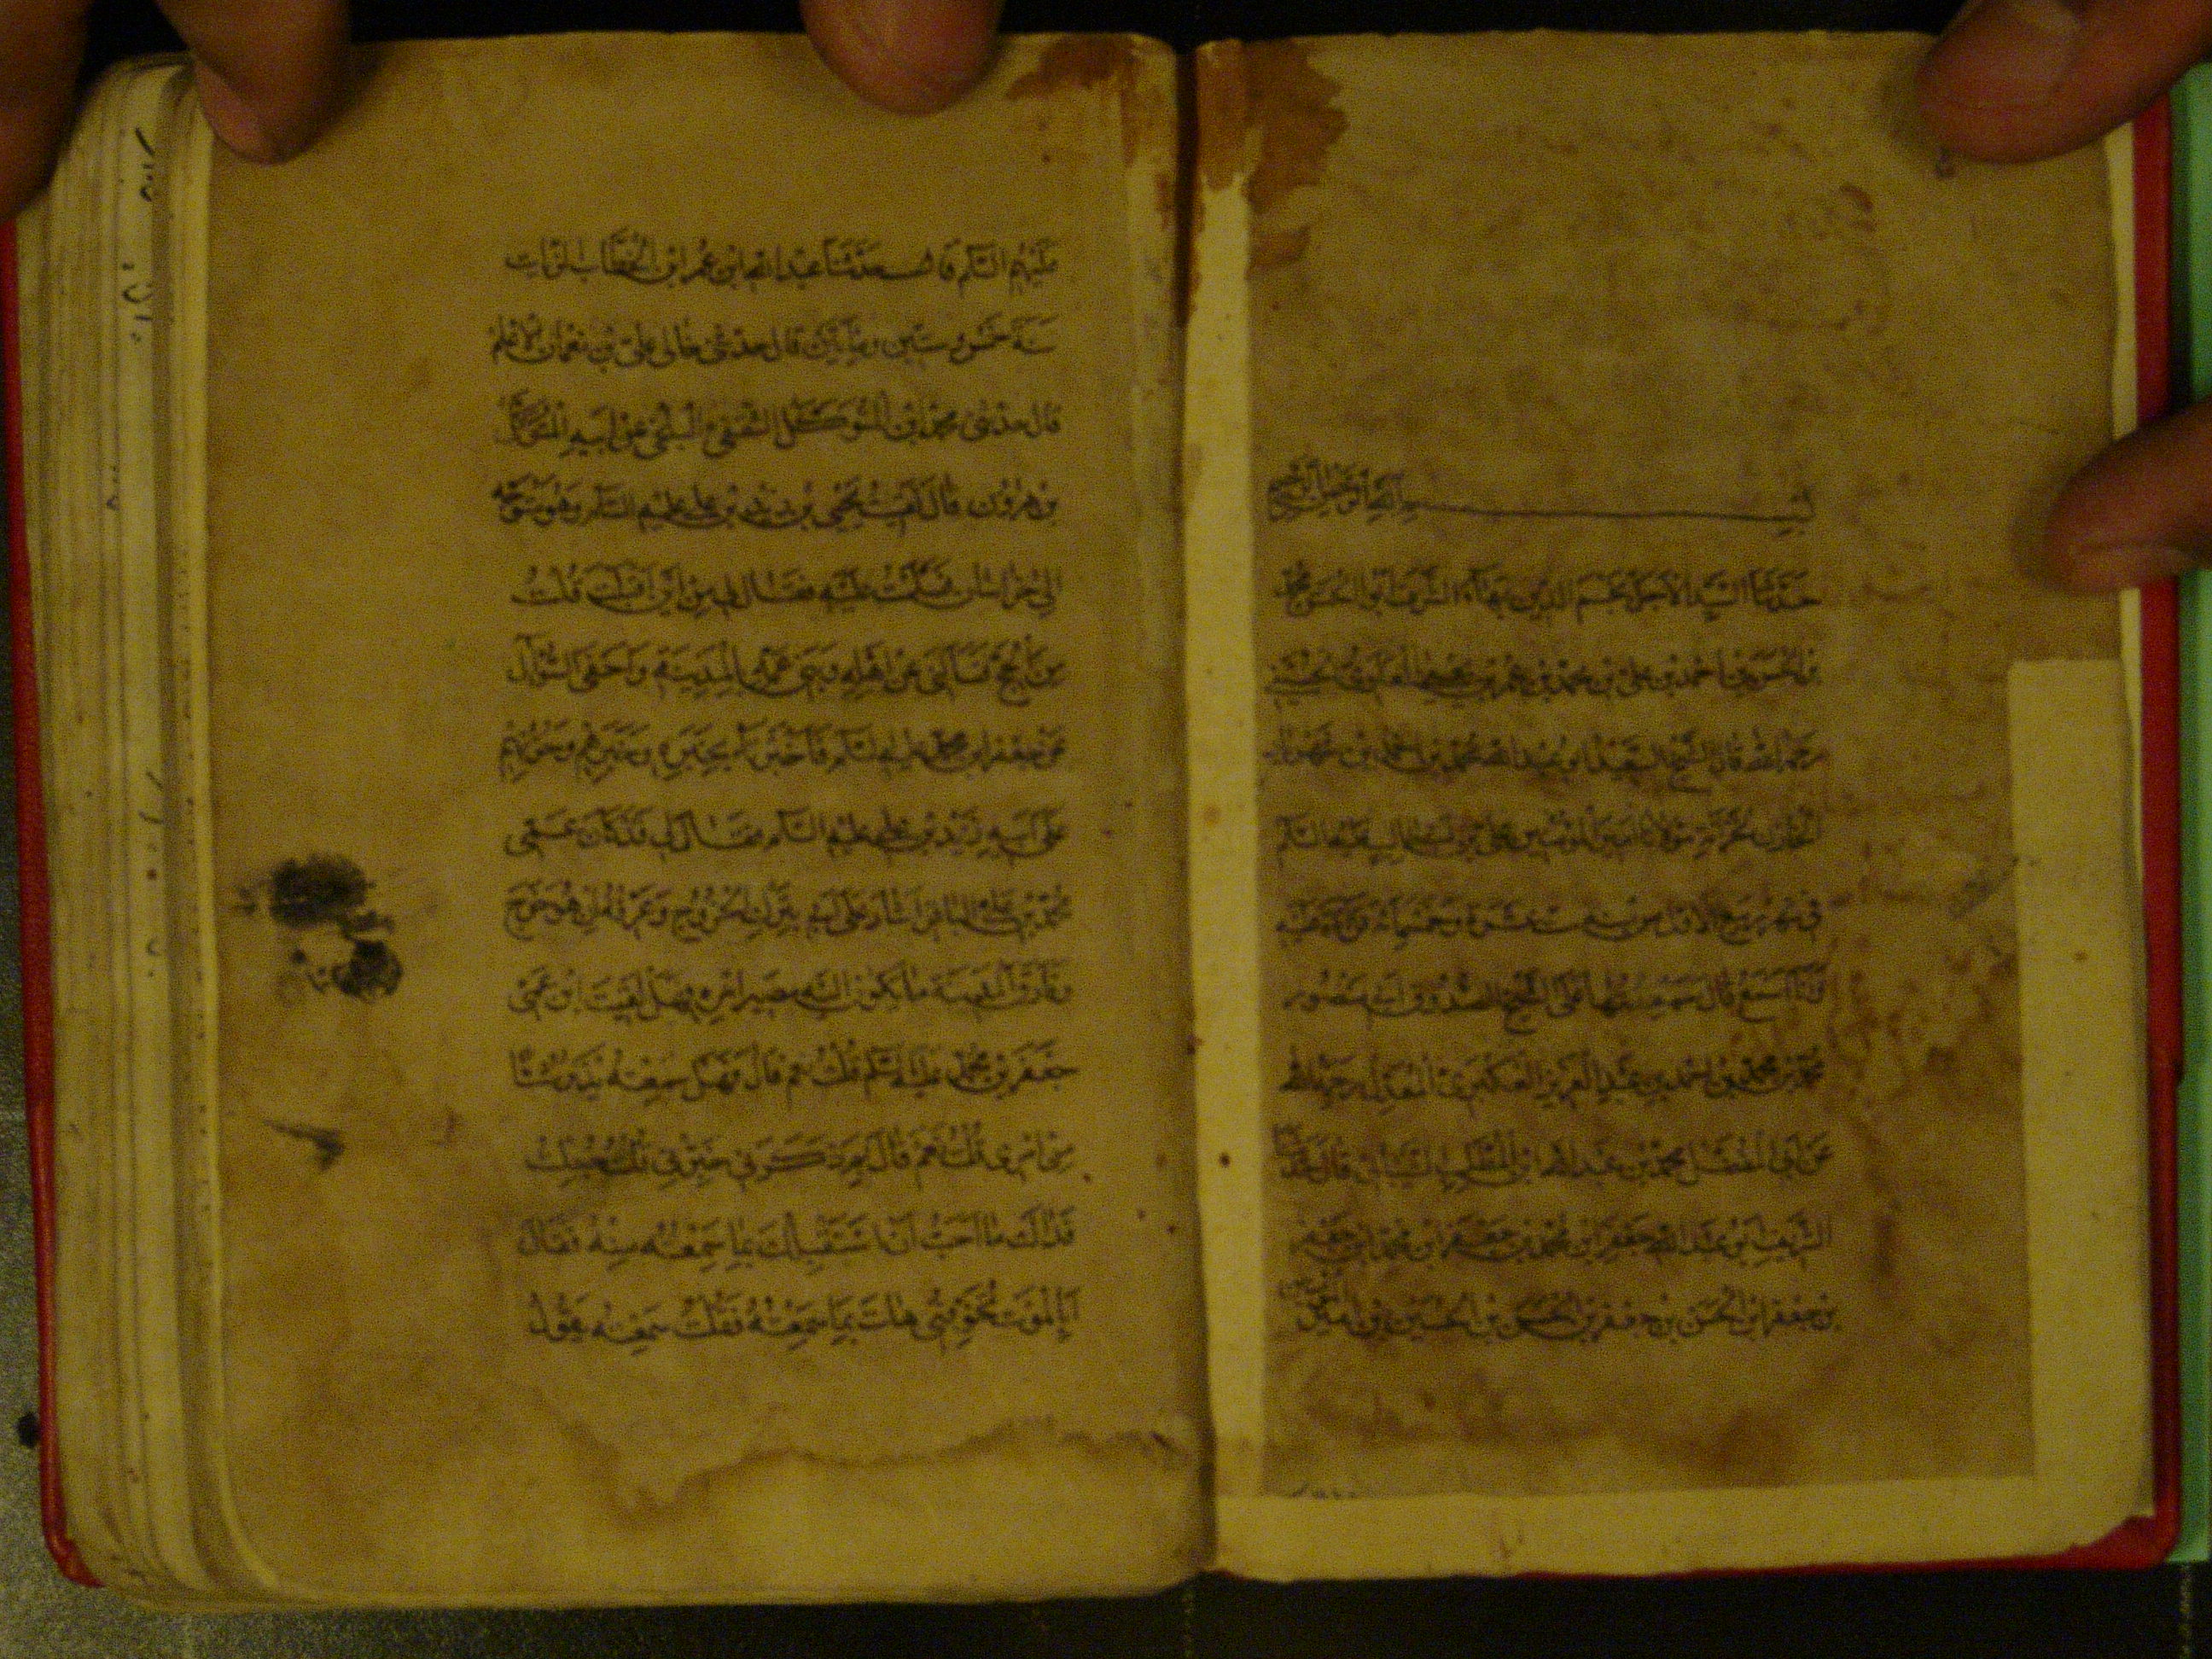 بسم الله الرحمن الرحيم
حدثنا السيد الاجل نجم الدين بهاء الشرف ابو الحسن محمد
بن الحسن بن احمد بن علي بن محمد بن عمر بن يحيى العلوي الحسيني
رحمه الله قال الشيخ السعيد ابو عبد الله محمد بن احمد بن شهريار
الخازن لخزانة مولانا امير المؤمنين علي بن ابي طالب عليه السلام
في شهر ربيع الاول من سنة ست عشرة وخمسمائة قراءة عليه
وانا اسمع قال سمعتها على الشيخ الصدوق ابي منصور
محمد بن محمد بن احمد بن عبد العزيز العكبري المعدل رحمه الله
عن ابي المفضل محمد بن عبد الله بن المطلب الشيباني قال حدثنا
الشريف ابو عبد الله جعفر ابن محمد بن جعفر ابن محمد ابن جعفر
بن جعفر ابن الحسن بن جعفر بن الحسن بن الحسين بن امير المؤمنين
عليهم السلام قال حدثنا عبد الله ابن عمر ابن الخطاب الزيات
سنة خمس وستين ومائتين قال حدثني خالي علي بن نعمان الاعلم
قال حدثني محمد بن المتوكل الثقفي البلخي عن ابيه المتوكل
بن هرون قال لقيت يحيى بن زيد بن علي عليهم السلام وهو متوجه
الى خراسان فسلمت عليه فقال لي من اين اقبلت قلت
من الحج فسالني عن اهله وبني عمه بالمدينة واحفى السؤال
عن جعفر ابن محمد عليه السلام فاخبرته بخبره وخبرهم وحزنهم
على ابيه زيد بن علي عليهم السلام فقال لي قد كان عمي
محمد بن علي الباقر اشار على ابي بترك الخروج وعرفه ان هو خرج
وفارق المدينة ما يكون اليه مصير امره فهل لقيت ابن عمي
جعفر بن محمد عليه السلام قلت نعم قال فهل سمعته يذكر شيئا
من امري قلت نعم قال بم ذكرني خبرني قلت جعلت
فداك ما احب ان استقبلك بما سمعته منه فقال
ابالموت تخوفني هات بما سمعته فقلت سمعته يقول